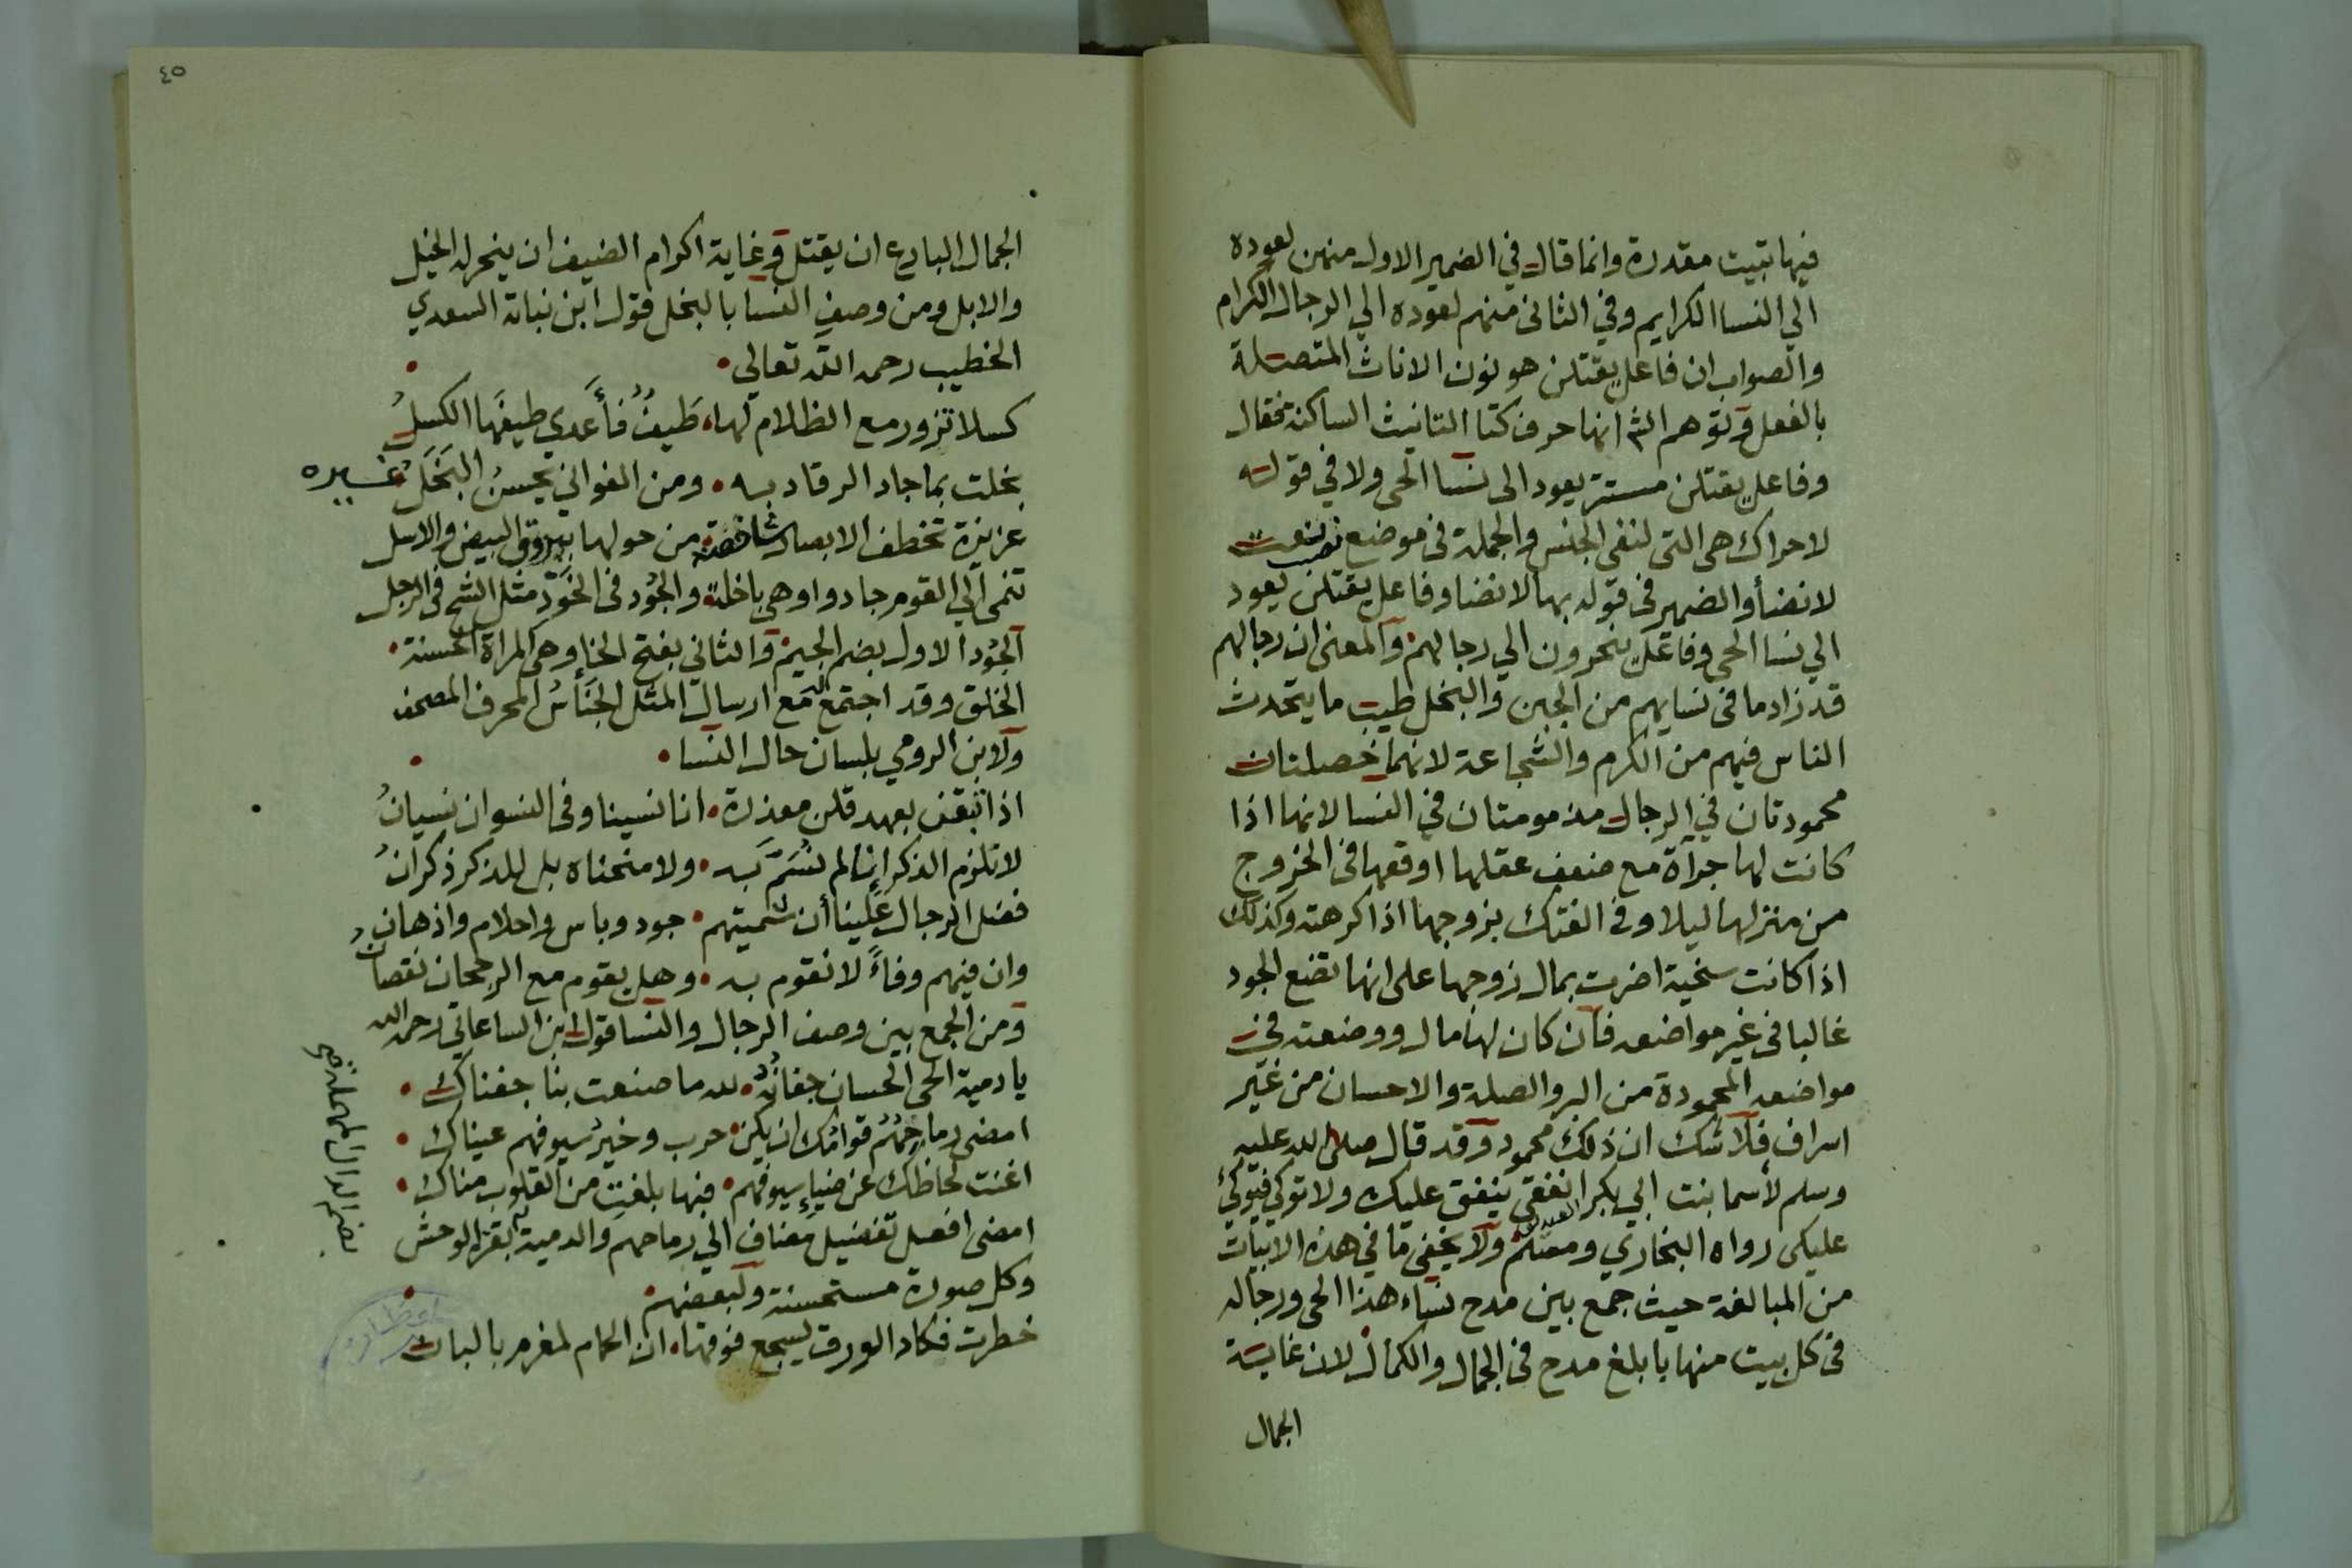 فيها تبيت مقدرة وانما قال في الضمير الاول منهن لعوده
الي النسا الكرايم وفي الثاني منهم لعوده الي الرجال الكرام
والصواب ان فاعل يقتلن هو نون الاناث المتصلة
بالفعل وتوهم الش انها حرف كتا التانيث الساكنة فقال
وفاعل يقتلن مستتر يعود الى نسا الحي ولا في قوله
لا حراك هى التى لنفى الجنس والجملة فى موضع نصب نعت
لانضأ والضمير فى قوله بها لانضا وفاعل يقتلن يعود
الي نسا الحي وفاعل ينحرون الي رجالهم والمعنى ان رجالهم
قد زاد ما فى نسايهم من الجبن والبخل طيب ما يتحدث
الناس فيهم من الكرم والشجاعة لانهما خصلتان
محمودتان في الرجال مذمومتان في النسا لانها اذا
كانت لها جرآة مع ضعف عقلها اوقعها فى الخروج
من منزلها ليلا وفى الفتك بزوجها اذا كرهته وكذلك
اذا كانت سخية اضرت بمال زوجها على انها تضع الجود
غالبا فى غير مواضعه فان كان لها مال ووضعته في
مواضعه المحمودة من البر والصلة والاحسان من غير
اسراف فلا شك ان ذلك محمود وقد قال صلى الله عليه
وسلم لأسما بنت ابي بكر انفقى ينفق عليك ولا توكي فيوكئ
عليكى رواه البخاري ومسلم ولا يخفى ما في هذه الابيات
من المبالغة حيث جمع بين مدح نساء هذا الحي ورجاله
فى كل بيت منها بابلغ مدح فى الجمال والكمال لان غاية
الجمال
٤٥
الجمال البارع ان يقتل وغاية اكرام الضيف ان ينحر له الخيل
والابل ومن وصف النسا بالبخل قول ابن نباتة السعدي
الخطيب رحمه الله تعالي
كسلا تزور مع الظلام لها طيفٌ فأعدي طيفَها الكسلُ
بخلت بما جاد الرقاد به ومن الغواني يحسنُ البَخَل غيره
عزيزة تخطف الابصار شاخصة من حولها ببروق البيض والاسل
تنمى الي القوم جادوا وهي باخلة والجُود فى الخَوْد مثل الشح فى الرجل
الجُود الاول بضم الجيم والثاني بفتح الخا وهي المراة الحسنة
الخلق وقد اجتمع مع ارسال المثل الجناسُ المحرف المصحف
ولابن الرومي بلسان حال النسا
اذا نقض بعهد قلن معذرة انا نسينا وفى النسوان نسيانُ
لا تلزم الذكر إنا لم نُسَمَّ به ولا منحناه بل للذكر ذكرانُ
فضل الرجال علينا أن شميتهم جود وباس واحلام واذهان
وان فيهم وفاءً لا نقوم به وهل يقوم مع الرجحان نقصان
ومن الجمع بين وصف الرجال والنسا قول ابن الساعاتي رحمه الله
يا دمية الحي الحسان جفانُه لله ما صنعت بنا جفناك
امضى رماحِهُم قوامُك ان يكن حرب وخيرُ سيوفهم عيناك
اغنت لحاظك عن ضياء سيوفهم فبها بلغتِ من القلوب مناك
امضى افعل تفضيل مضاف الي رماحهم والدمية بقر الوحش
وكل صورة مستحسنة ولبعضهم
خطرت فكاد الورق يسجع فوقها ان الحمام لمغرم بالبان